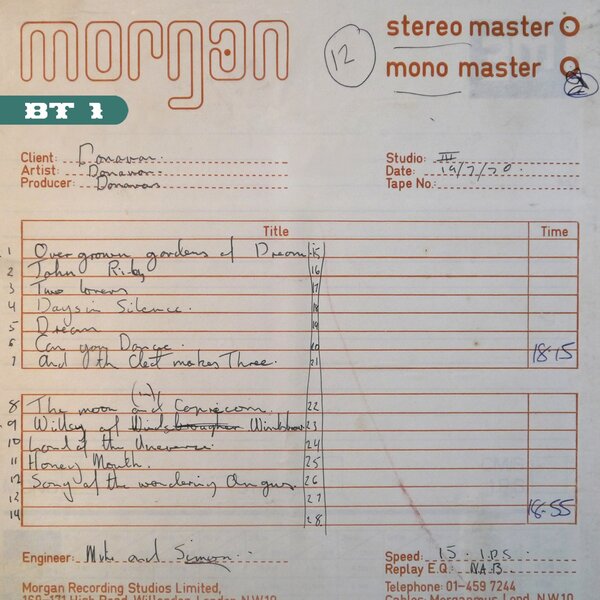 morgan
stereo master
mono master
12
BT 1
Client: Donovan.
Artist: Donovan.
Producer: Donovan
Studio: III
Date: 19/7/70.
Tape No.:
Title Time
1 Overgrown gardens of Dream 15
2 John Riley 16
3 Two lovers 17
4 Days in Silence. 18
5 Dream 19
6 Can you Dance. 20
7 And the Cleft makes Three. 21
18-15
8 The moon and (in) Capricorn. 22
9 Willsy of Windsbrougher 23
10 Lord of the Uneverse. 24
11 Honey Mouth. 25
12 Song of the wondering Ongus 26
13 27
14 28
18-55
Engineer: Mike and Simeon.
Speed: 15. I.P.S.
Replay E.Q.: N.A.B.
Morgan Recording Studios Limited,
169-171 High Road, Willesden, London, N.W.10
Telephone: 01-459 7244
Cables: Morganmus London, N.W.10